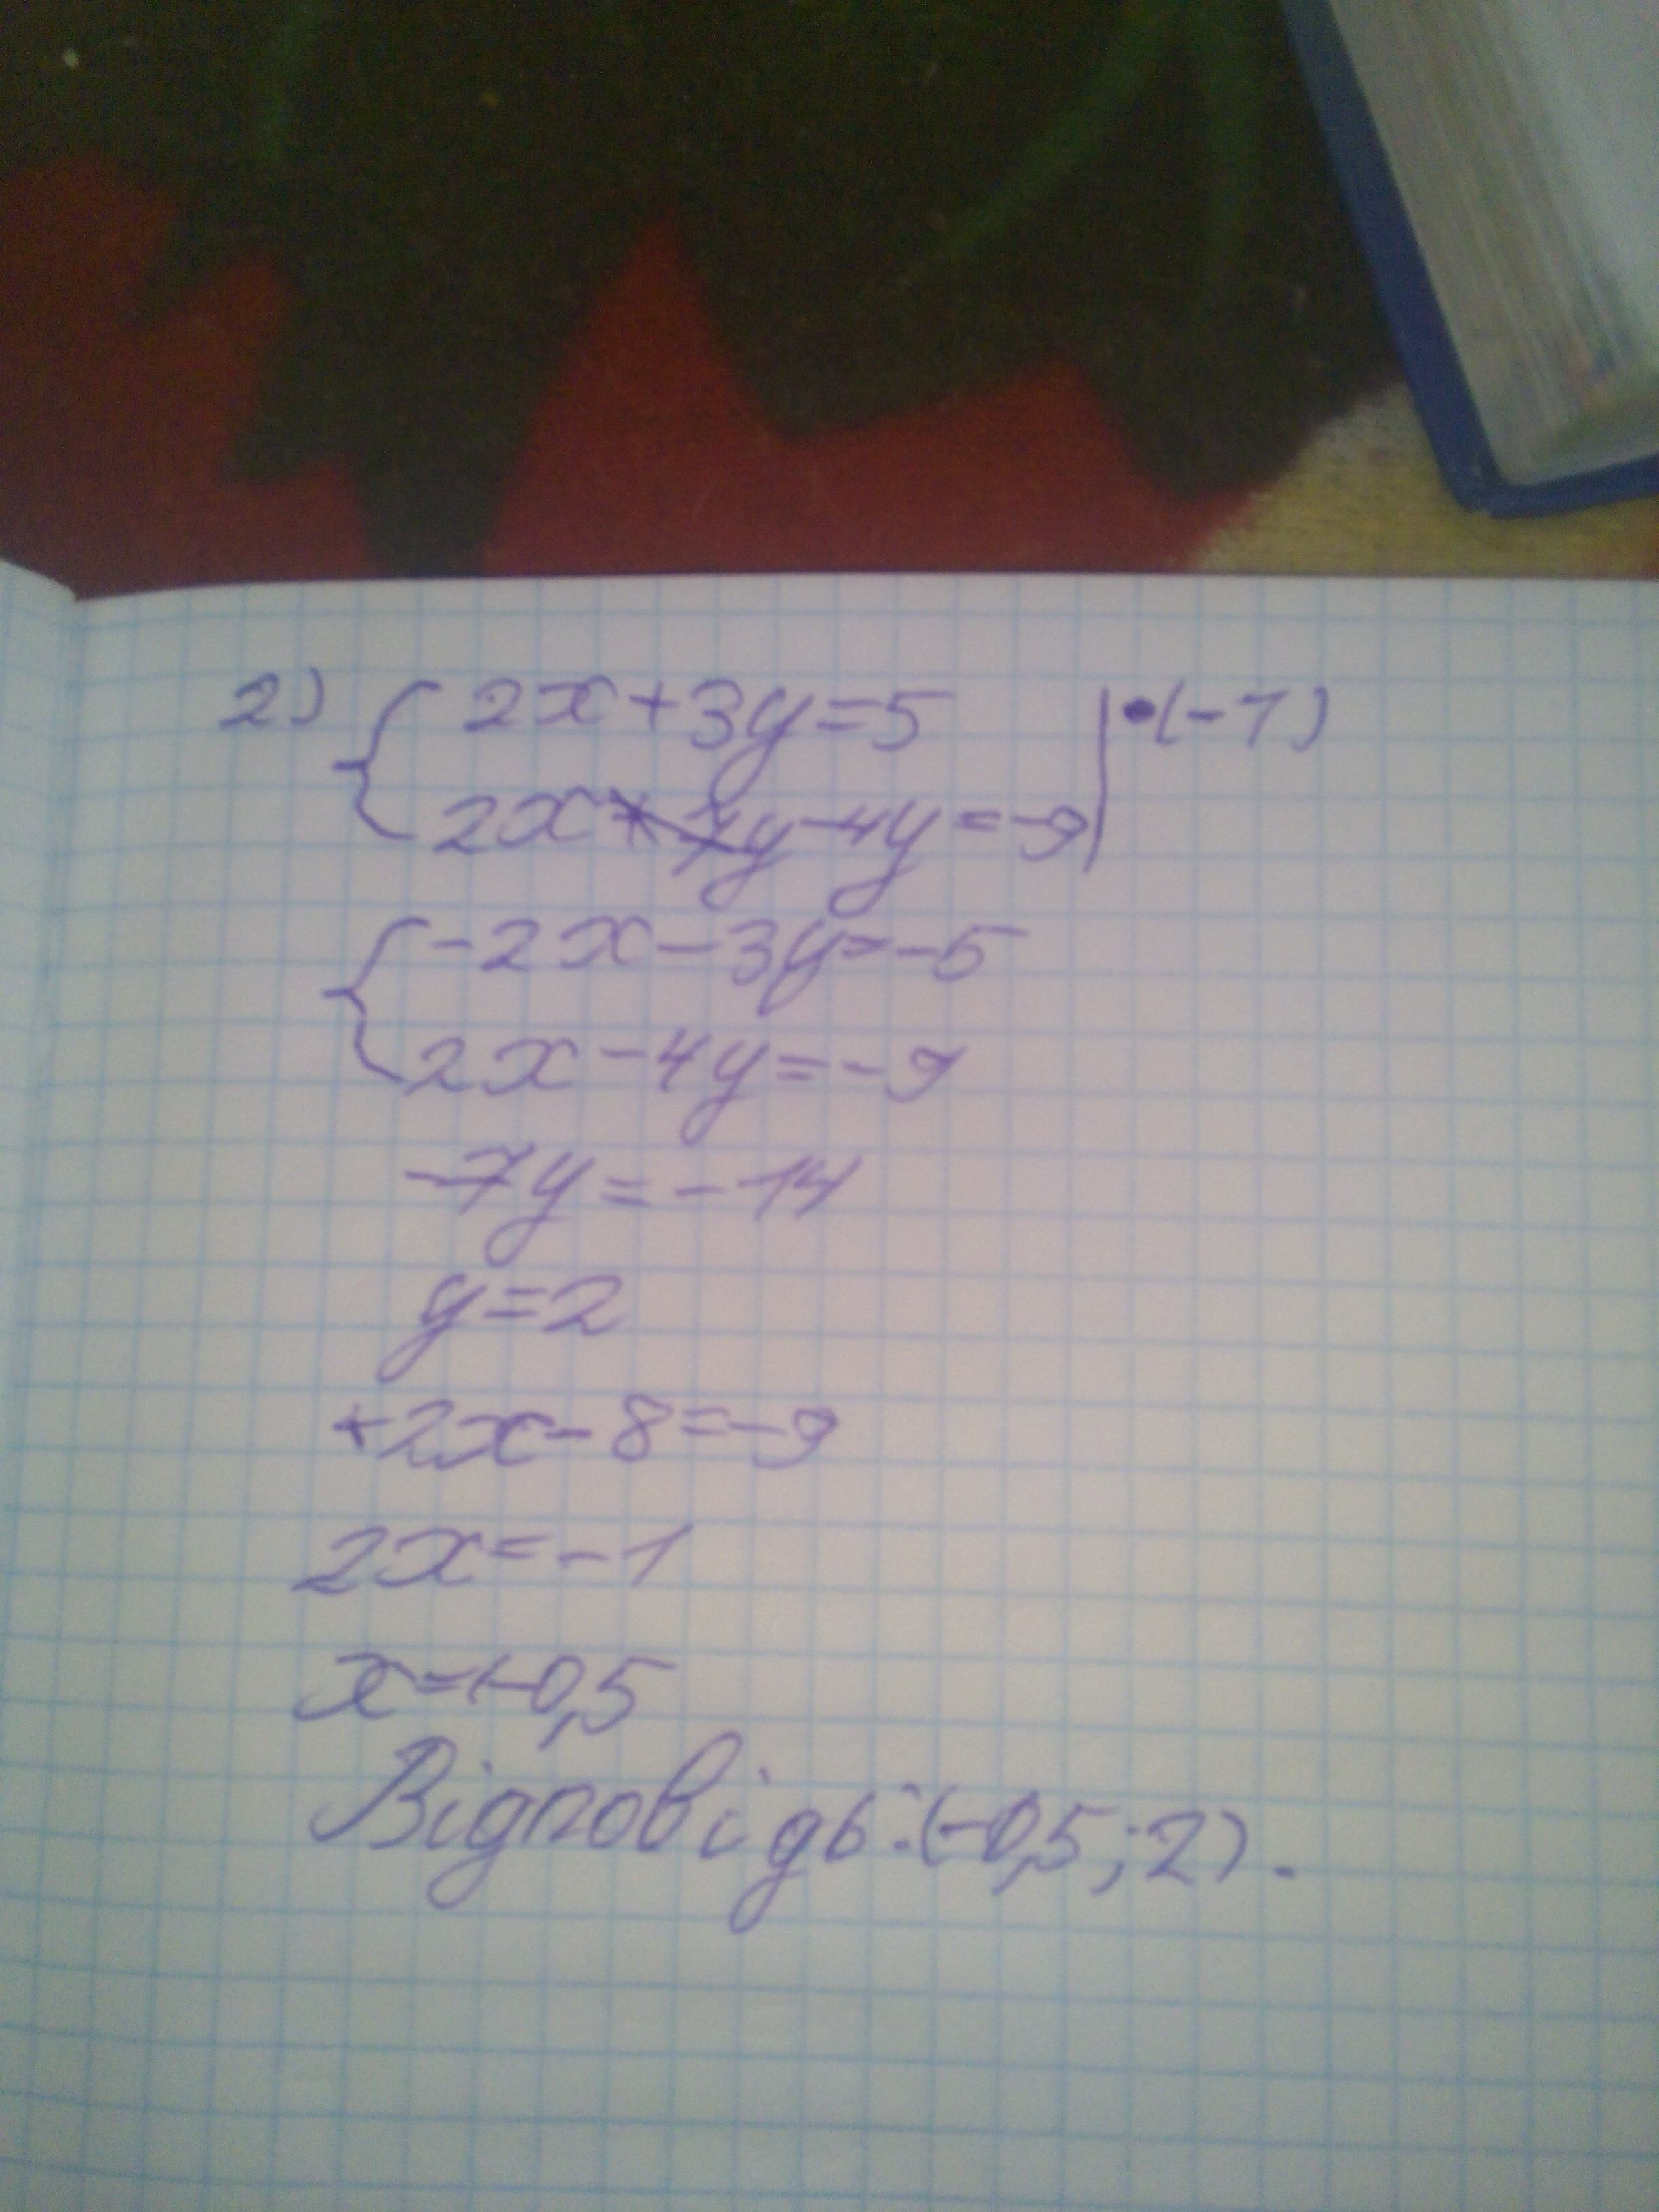 2) { 2x+3y=5 | •(-1)
2x-4y=-9
{ -2x-3y=-5
2x-4y=-9
-7y=-14
y=2
+2x-8=-9
2x=-1
x=-0,5
Відповідь:(-0,5;2).